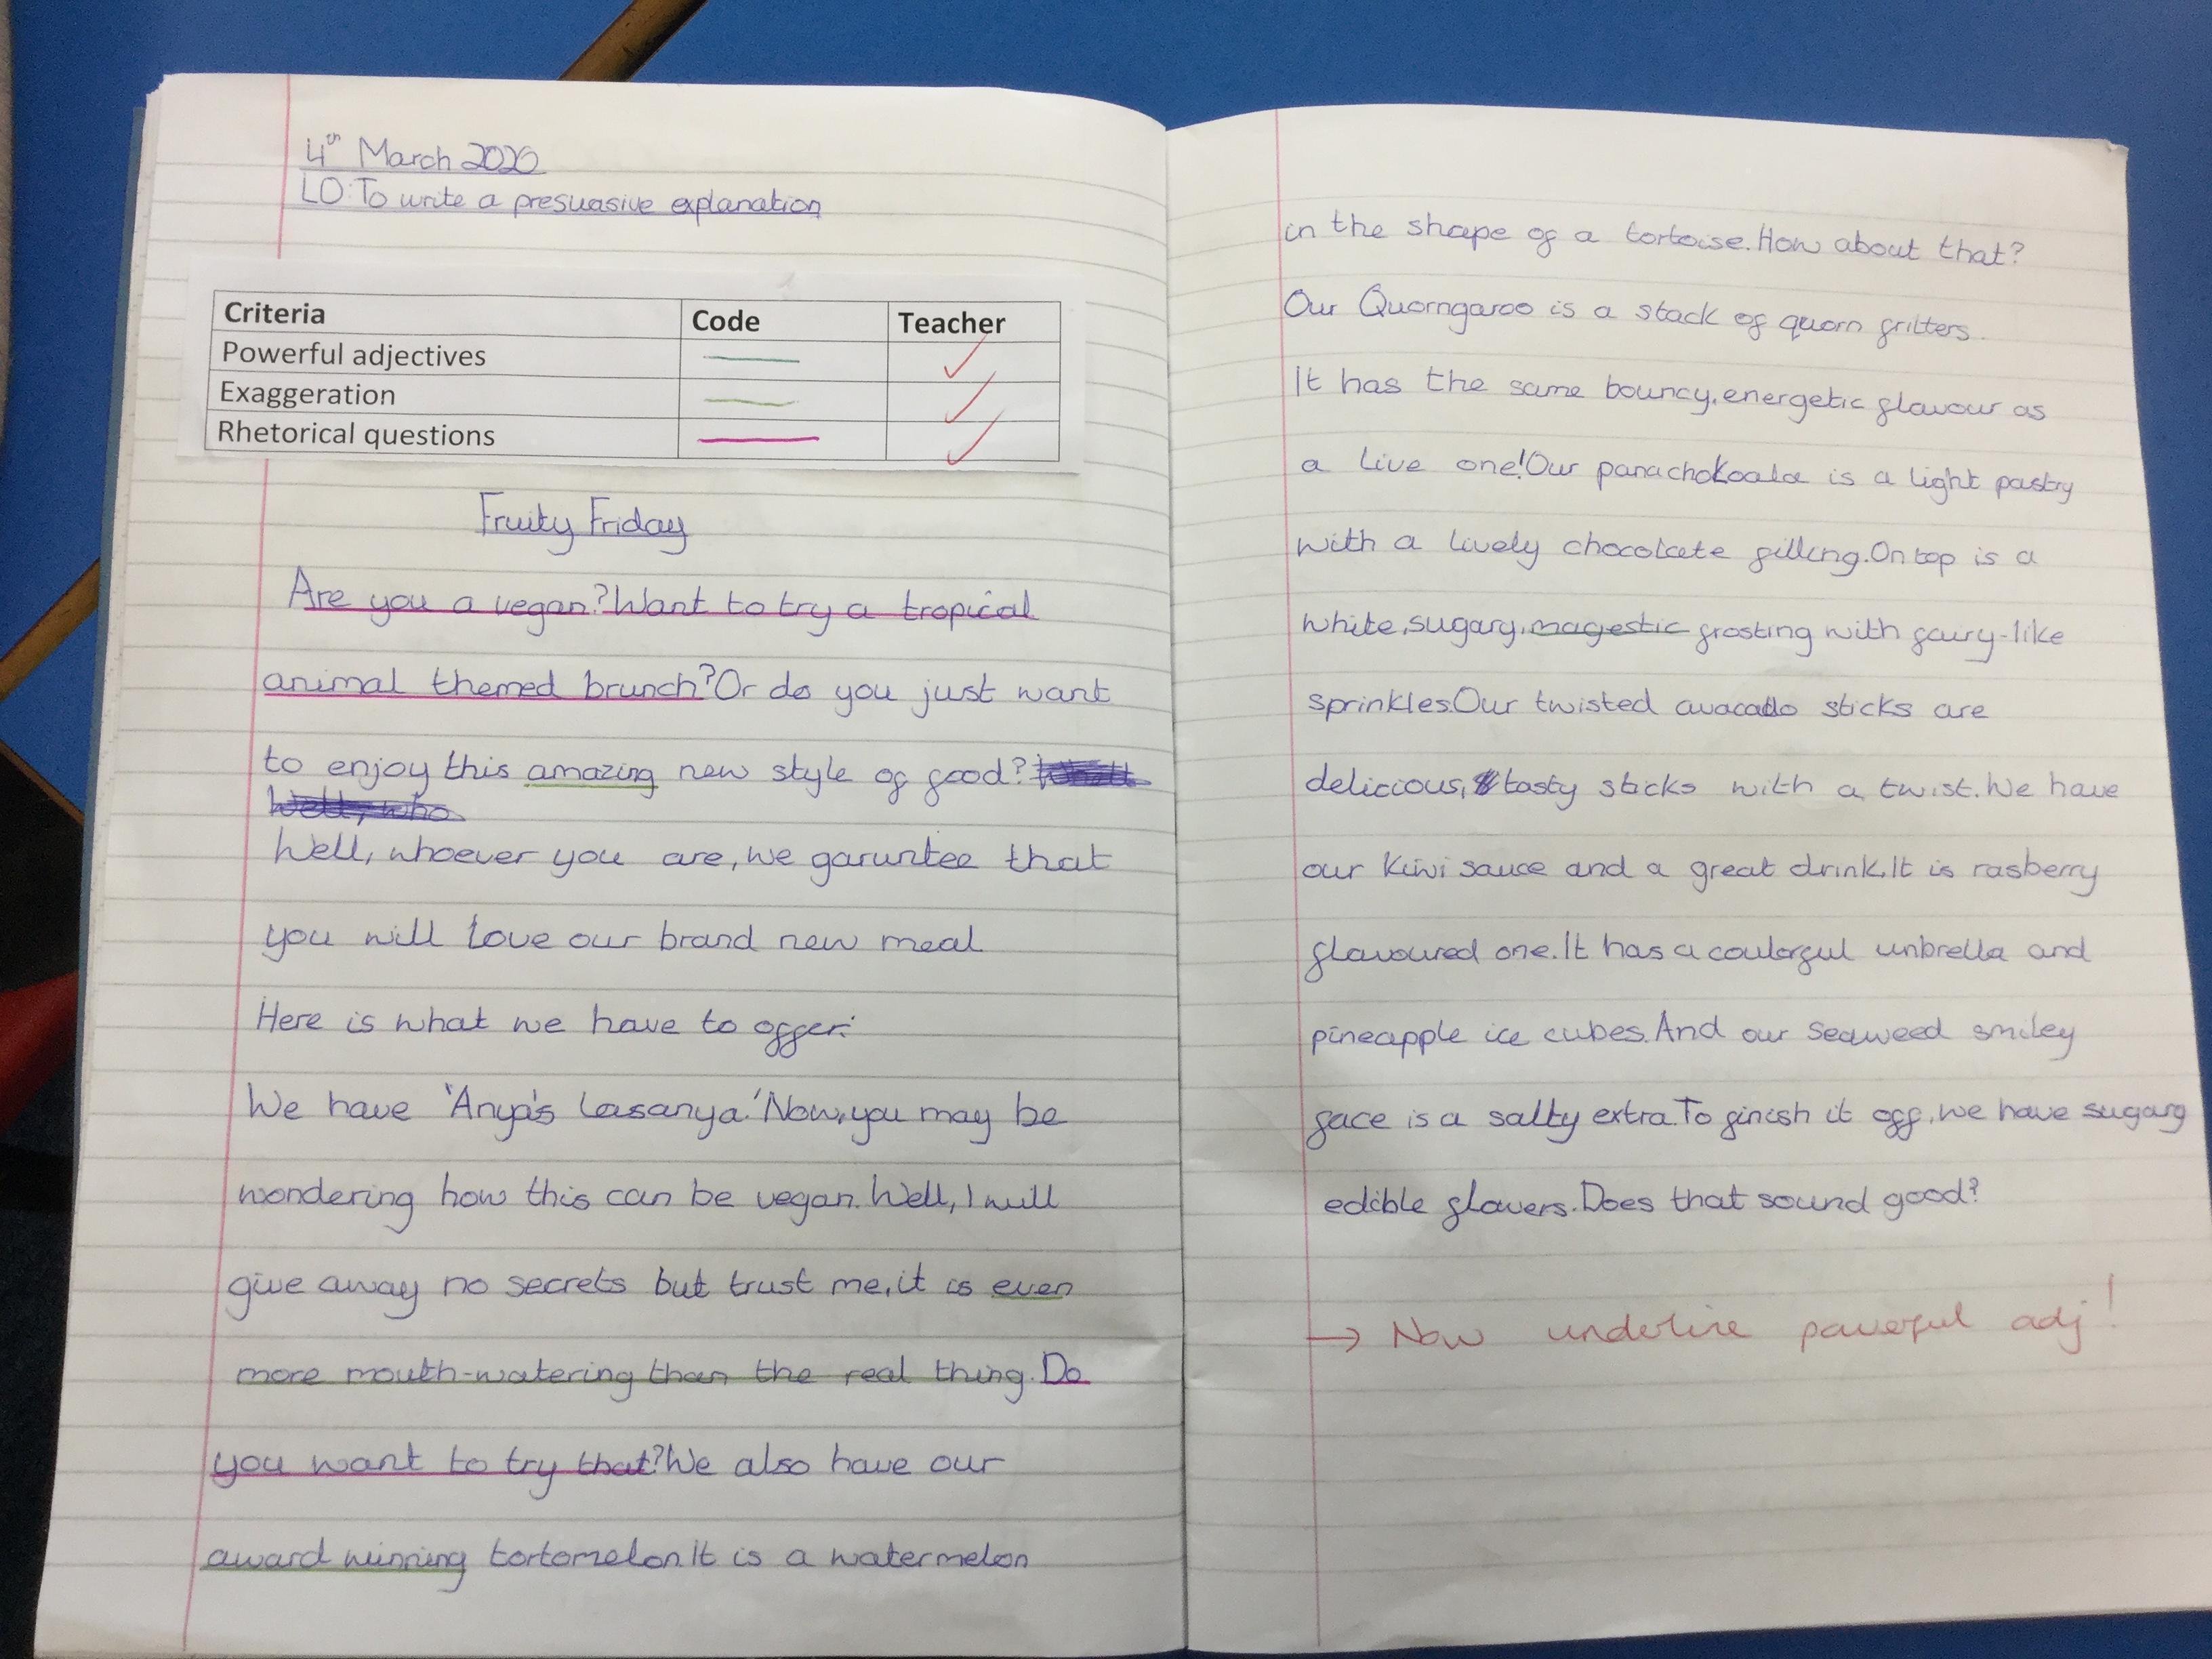 4th March 2020
LO: To write a presuasive explanation
Criteria Code Teacher
Powerful adjectives
Exaggeration
Rhetorical questions
Fruity Friday
Are you a vegan? Want to try a tropical
animal themed brunch? Or do you just want
to enjoy this amazing new style of food?
Well, who
Well, whoever you are, we garuntee that
you will love our brand new meal
Here is what we have to offer:
We have 'Anya's Lasanya.' Now, you may be
wondering how this can be vegan. Well, I will
give away no secrets but trust me, it is even
more mouth-watering than the real thing. Do
you want to try that? We also have our
award winning tortomelon. It is a watermelon
in the shape of a tortoise. How about that?
Our Quorngaroo is a stack of quorn fritters.
It has the same bouncy, energetic flavour as
a live one! Our panachokoala is a light pastry
with a lively chocolate filling. On top is a
white, sugary, magestic frosting with fairy-like
sprinkles. Our twisted avacado sticks are
delicious, tasty sticks with a twist. We have
our kiwi sauce and a great drink. It is rasberry
flavoured one. It has a coulorful unbrella and
pineapple ice cubes. And our seaweed smiley
face is a salty extra. To finish it off, we have sugary
edible flowers. Does that sound good?
→ Now underline powerful adj!